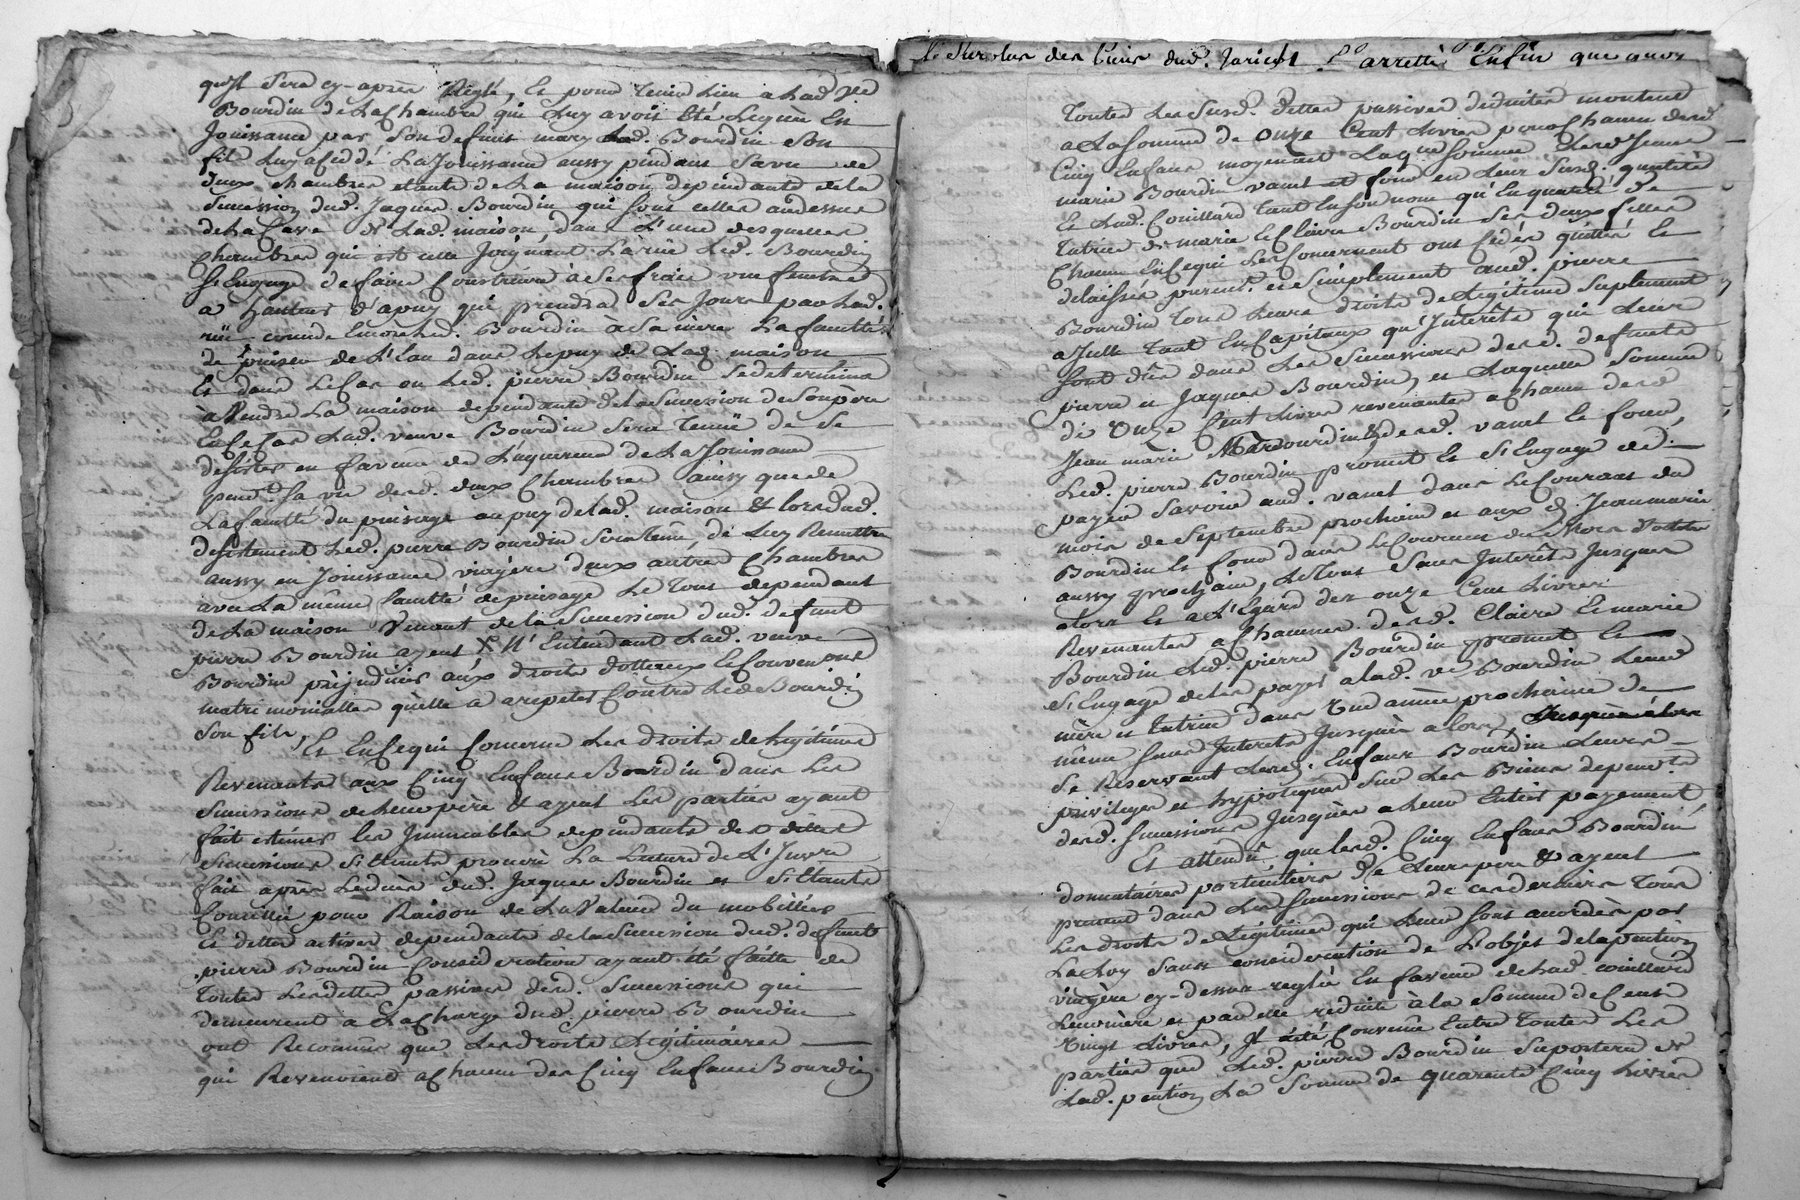 qu'il sera cy-après Réglé, Et pour tenir Lieu a Lad. ve
Bourdin de La Chambre qui Luy avoit été Leguée En
Jouissance par Son defunt mary Led. Bourdin Son
fils Luy a Cedé La Jouissance aussy pendant Sa vie de
deux chambres etant de La maison dependante de la
Succession dud. Jaques Bourdin qui sont celles au dessus
de La Cave de Lad. maison, dans L'une desquelles
Chambres qui est celle Joignant La rüe Led. Bourdin
S'Engage de faire Construire à Ses frais une fenetre
a hauteur d'apuy qui prendra Ses Jours par Lad.
rüe comme Encore Led. Bourdin à Sa mere La faculté
de puiser de L'Eau dans Le puy de Lad. maison
Et dans Le Cas ou Led. pierre Bourdin Se determina
à Vendre La maison dependante de la Succession de Son père
En Ce Cas Lad. veuve Bourdin Sera Tenüe de Se
desister en faveur de L'aquereur de La Jouissance
pendt. Sa vie desd. deux Chambres ainsy que de
La faculté du puisage au puy de Lad. maison & lors dud.
desistement Led. pierre Bourdin Sera Tenu de Luy Remettre
aussy en Jouissance viagère deux autres Chambres
avec La même faculté de puisage Le Tout dependant
de La maison Venant de la Succession dud. defunt
pierre Bourdin ayeul N'Entendant Lad. veuve
Bourdin préjudicier aux droits dotteaux Et Conventions
matrimonialles qu'elle a a repeter Contre Led. Bourdin
Son fils,
Et En Ce qui Concerne Les droits de Legitimes
Revenants aux Cinq Enfans Bourdin dans Les
Successions de Leur père & ayeul Les parties ayant
fait estimer les Immeubles dependants des dittes
Successions S'Etants procuré La Lecture de L'Invre
fait après Le décès dud. Jaques Bourdin et S'Etants
Conseillé pour Raison de La Valeur du mobillier
Et dettes actives dependants de la Succession dud. defunt
pierre Bourdin Consideration ayant été faitte de
Toutes Les dettes passives desd. Successions qui
demeurent à La Charge dud. pierre Bourdin
ont Reconnu que Les droits Légitimaires
qui Revenoient a Chacun des Cinq Enfans Bourdin
Le Surplus des dud. arretté Enfin que quoy
Toutes Les Susd. dettes passives deduites montent
a La Somme de Onze Cent Livres pour Chacun desd.
Cinq Enfans moyenant Laqle Somme Lesd. Jeanne
marie Bourdin vanel et fond en Leur Susd. qualité
Et Lad. Couillard Tant En Son nom qu'En qualité de
Tutrice de marie Et Claire Bourdin Ses deux filles
Chacun En Ce qui Les Concernent ont Cédés quittés Et
delaissés puremt. et Simplement aud. pierre
Bourdin Tous Leurs droits de Legitime Suplement
a Icelle Tant En Capitaux qu'Interêts qui Leur
Sont dûs dans Les Successions desd. defunts
pierre et Jaques Bourdin, et Laquelle Somme
de Onze Cent Livres revenantes a Chacun desd.
Jean marie Bourdin & desd. vanel Et fond,
Led. pierre Bourdin promet Et S'Engage de
payer Savoir aud. vanel dans Le Courant du
mois de Septembre prochain et aux d. Jean marie
Bourdin Et fond dans Le Courant du Mois d'octobre
aussy prochain, Le Tout Sans Interêts Jusques
alors Et a L'Egard des onze Cent Livres
Revenantes a Chacunes desd. Claire Et marie
Bourdin Led. pierre Bourdin promet Et
S'Engage de les payer a Lad. ve Bourdin Leur
mère et Tutrice dans Une année prochaine de
même Sans Interets Jusques a lors,
Se Réservant Lesd. Enfans Bourdin Leurs
privileges et hypoteques Sur Les Biens dependts.
desd. Successions Jusques a Leur Entier payement
Et attendu que Lesd. Cinq Enfans Bourdin
donnataires particuliers de Leurs pere & ayeul
prennent dans Les Successions de ces derniers Tous
Les droits de Legitimes qui Leur Sont accordés par
La Loy Sans consideration de L'objet de la pention
viagère cy-dessus reglée En faveur de Lad. couillard
Leur mère et par elle reduite a la Somme de Cent
Vingt Livres, Il a été Convenu Entre Toutes Les
parties que Led. pierre Bourdin Suportera de
Lad. pention La Somme de quarente Cinq Livres